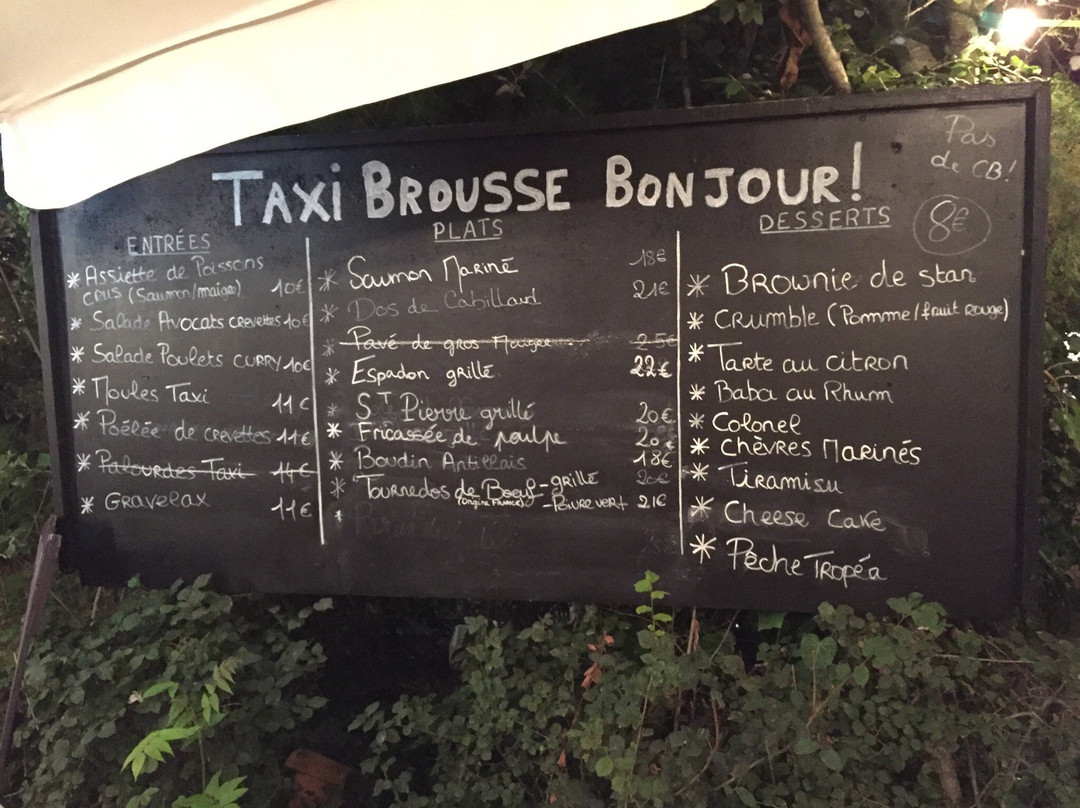 Pas
de CB!
TAXI BROUSSE BONJOUR!
ENTRÉES
* Assiette de Poissons
crus (Saumon/maigre) 10€
* Salade Avocats crevettes 10€
* Salade Poulets CURRY 10€
* Moules Taxi 11€
* Poêlée de crevettes 11€
* Palourdes Taxi 14€
* Gravelax 11€
PLATS
* Saumon Mariné 18€
* Dos de Cabillaud 21€
* Pavé de gros Maigre 25€
* Espadon grillé 22€
* ST Pierre grillé 20€
* Fricassée de poulpe 20€
* Boudin Antillais 18€
* Tournedos de Boeuf - grillé 20€
(Origine France) - Poivre vert 21€
*
DESSERTS
8€
* Brownie de star
* Crumble (Pomme/fruit rouge)
* Tarte au citron
* Baba au Rhum
* Colonel
* Chèvres Marinés
* Tiramisu
* Cheese Cake
* Pêche Tropéa